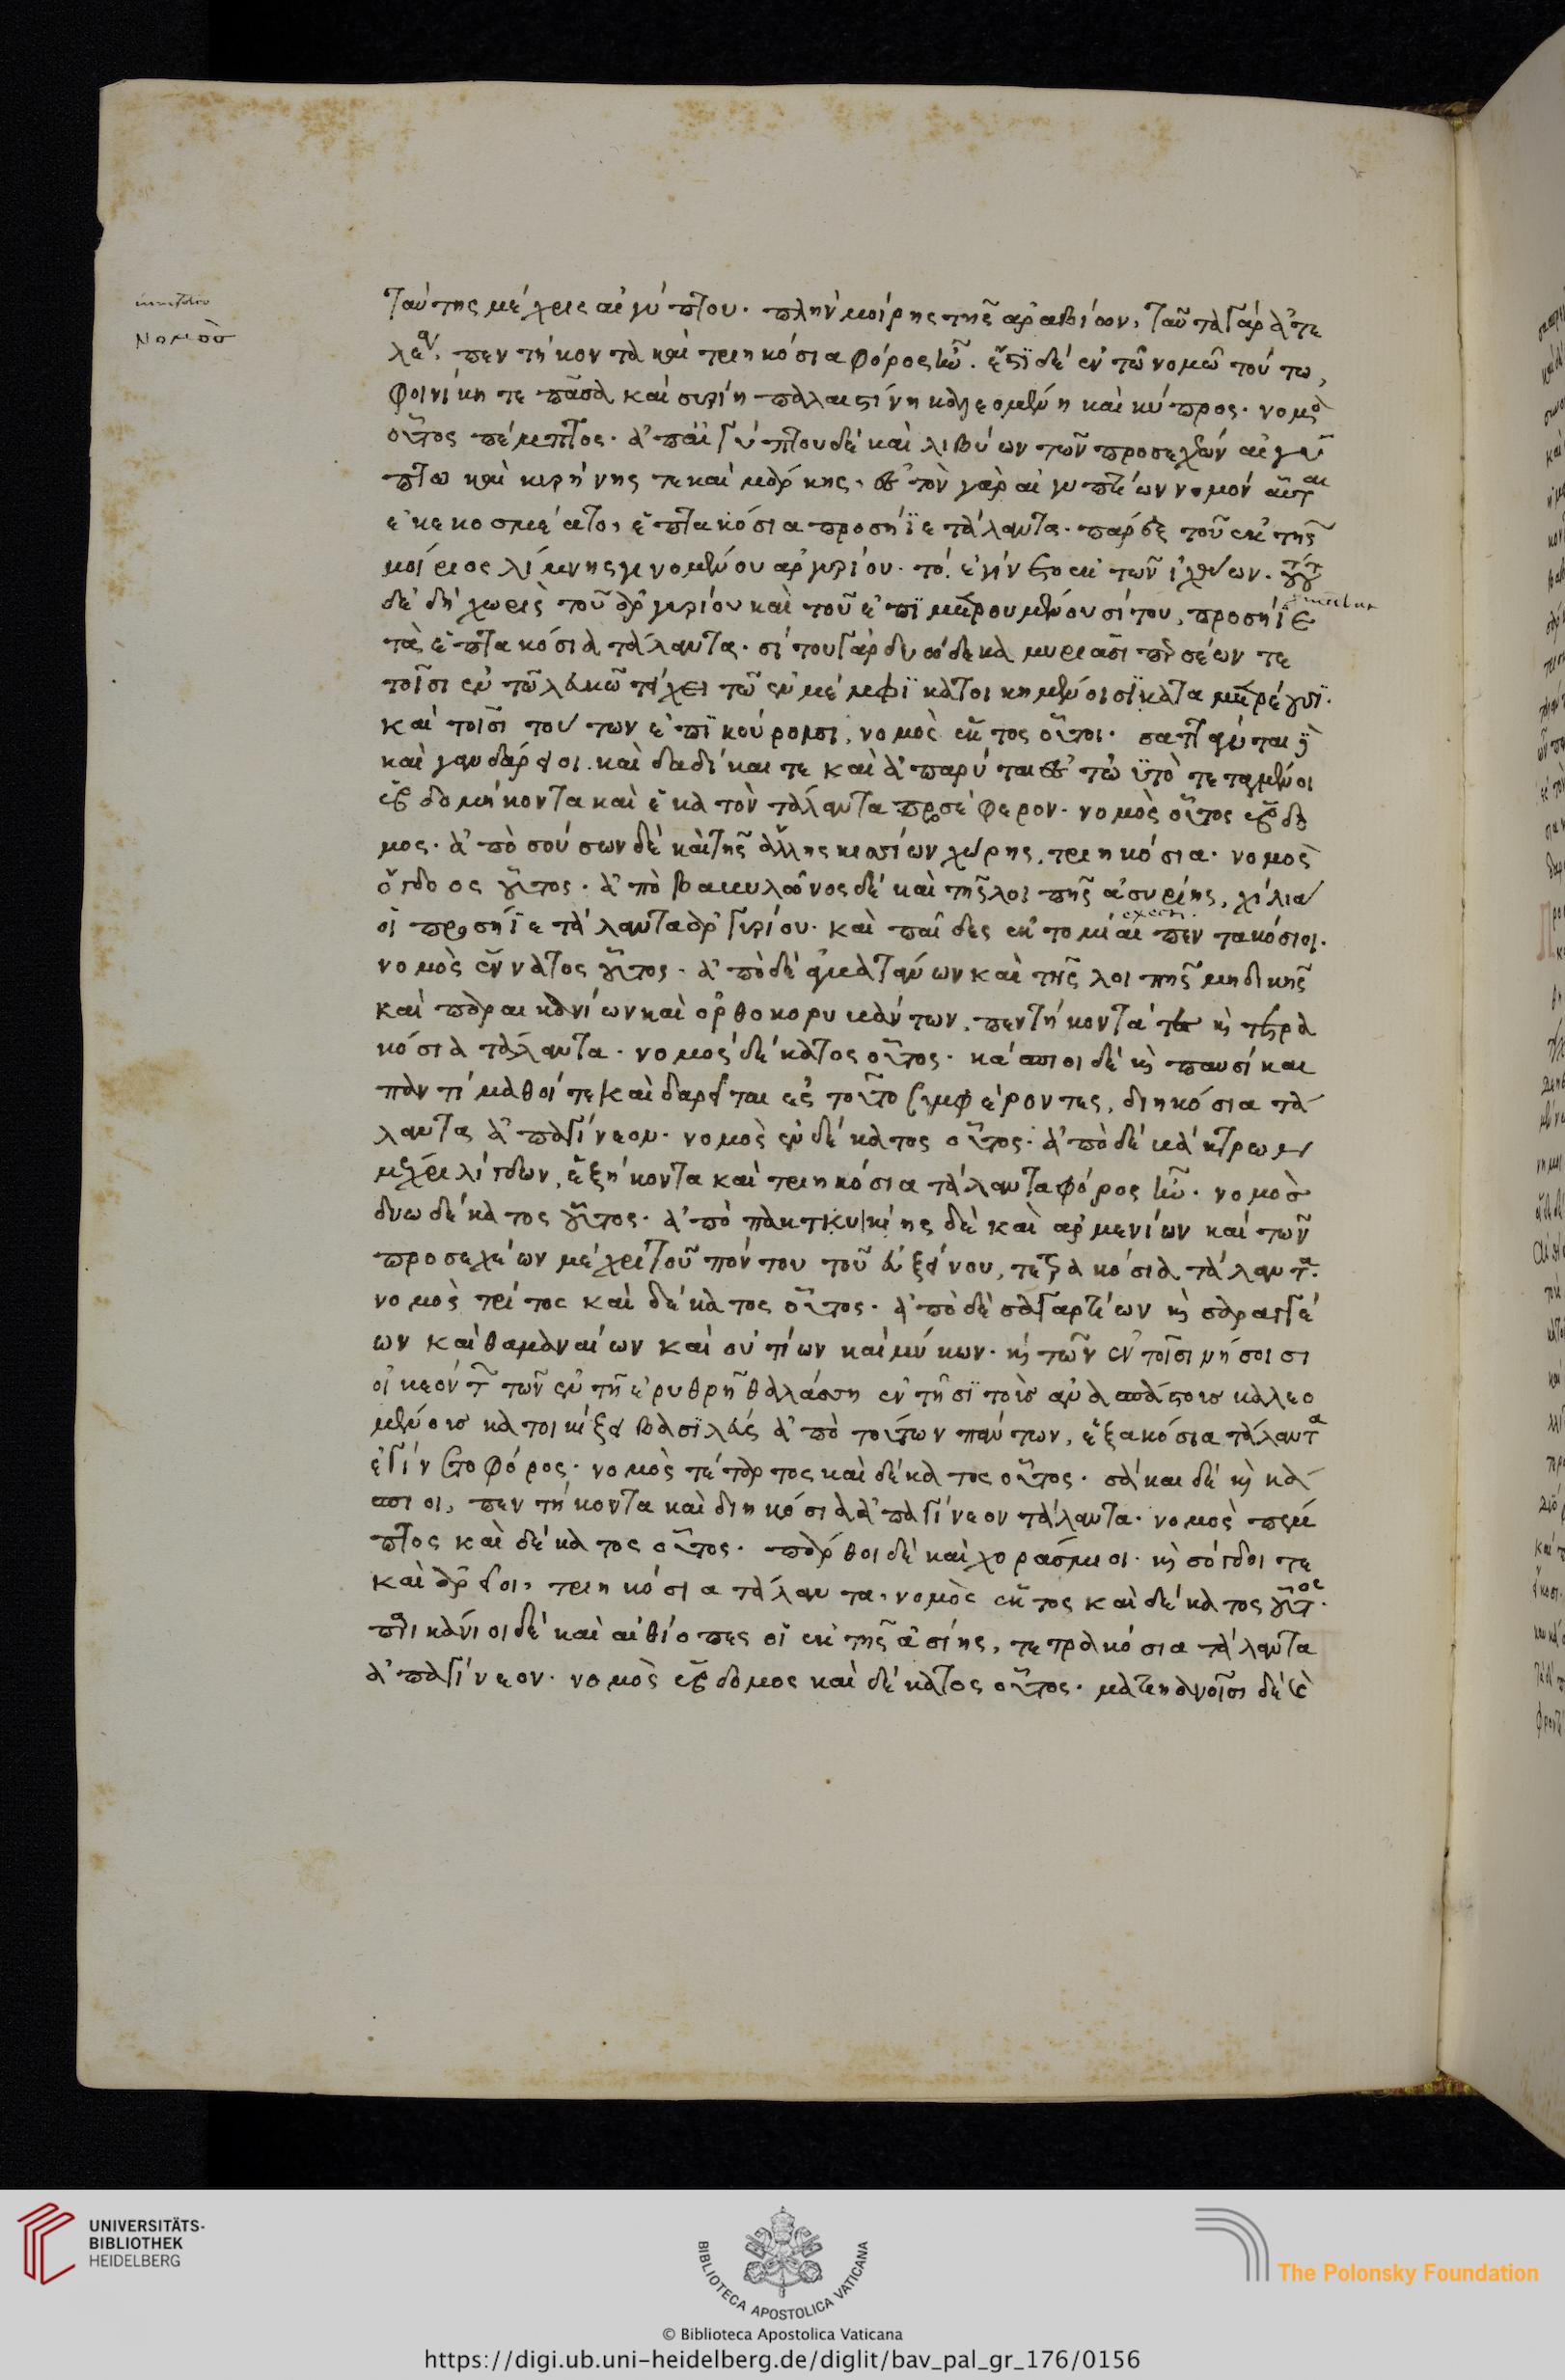 Νομὸσ
ταύτης μέχρις αἰγύπτου. πλὴν μοίρης τῆς ἀραβίων, ταῦτα γὰρ ἀτε
λέα. πεντήκοντα καὶ τριηκόσια φόρος ἦν. ἔστι δὲ ἐν τῶ νομῶ τούτω,
φοινίκη τε πᾶσα καὶ συρίη παλαιστίνη καλεομένη καὶ κύπρος. νομὸς
οὗτος πέμπτος. ἀπ αἰγύπτου δὲ καὶ λιβύων τῶν προσεχέων αἰγύ
πτω καὶ κυρήνης τε καὶ βάρκης. ἐς τὸν γὰρ αἰγύπτιον νομὸν αὗται
ἐκεκοσμέατο, ἑπτακόσια προσήϊε τάλαντα. πάρεξ τοῦ ἐκ τῆς
μοίριος λίμνης γινομένου ἀργυρίου. τὸ ἐγίνετο ἐκ τῶν ἰχθύων. τούτου
δὲ δὴ χωρὶς τοῦ ἀργυρίου καὶ τοῦ ἐπιμετρουμένου σίτου, προσήϊε
τὰ ἑπτακόσια τάλαντα. σίτου γὰρ δυώδεκα μυριάσι περσέων τε
τοῖσι ἐν τῶ λευκῶ τείχει τῶ ἐν μέμφϊ κατοικημένοισϊ καταμετρέουσϊ.
καὶ τοῖσι τούτων ἐπϊκούροισι, νομὸς ἕκτος οὗτοι. σατταγύται δὲ
καὶ γανδάριοι. καὶ δαδίκαι τε καὶ ἀπαρύται ἐς τὠϋτὸ τεταγμένοι
ἑβδομήκοντα καὶ ἑκατὸν τάλαντα προσέφερον. νομὸς οὗτος ἕβδο
μος. ἀπὸ σούσων δὲ καὶ τῆς ἄλλης κισσίων χώρης, τριηκόσια. νομὸς
ὄγδοος οὗτος. ἀπὸ βαβυλῶνος δὲ καὶ τῆς λοιπῆς ἀσυρίης, χίλια
οἱ προσήϊε τάλαντα ἀργυρίου. καὶ παῖδες ἐκτομίαι πεντακόσιοι.
νομὸς ἔννατος οὗτος. ἀπὸ δὲ ἀγβατάνων καὶ τῆς λοιπῆς μηδικῆς
καὶ παρικανίων καὶ ὀρθοκορυβάντων, πεντήκοντά τε καὶ τετρα
κόσια τάλαντα. νομὸς δέκατος οὗτος. κάσπιοι δὲ καὶ παυσίκαι
παντίμαθοί τε καὶ δαρεῖται ἐς τὠυτὸ συμφέροντες, διηκόσια τά
λαντα ἀπαγίνεον. νομὸς ἑνδέκατος οὗτος. ἀπὸ δὲ βάκτρων
μέχρι λίγδων, ἑξήκοντα καὶ τριηκόσια τάλαντα φόρος ἦν. νομὸσ
δυωδέκατος οὗτος. ἀπὸ πακτυικῆς δὲ καὶ ἀρμενίων καὶ τῶν
προσεχέων μέχρι τοῦ πόντου τοῦ εὐξείνου, τετρακόσια τάλαντα.
νομὸς τρίτος καὶ δέκατος οὗτος. ἀπὸ δὲ σαγαρτίων καὶ σαραγγέ
ων καὶ θαμαναίων καὶ οὐτίων καὶ μύκων. καὶ τῶν ἐν τοῖσι νήσοισι
οἰκεόντων τῶν ἐν τῆ ἐρυθρῆ θαλάσση ἐν τῆσϊ τοὺσ ἀνασπάστουσ καλεο
μένουσ κατοικίζει βασϊλεὺς ἀπὸ τούτων πάντων, ἑξακόσια τάλαντα
ἐγίνετο φόρος. νομὸς τέταρτος καὶ δέκατος οὗτος. σάκαι δὲ καὶ κά
σπιοι, πεντήκοντα καὶ διηκόσια ἀπαγίνεον τάλαντα. νομὸς πέμ
πτος καὶ δέκατος οὗτος. πάρθοι δὲ καὶ χοράσμιοι. καὶ σόγδοι τε
καὶ ἄρειοι, τριηκόσια τάλαντα, νομὸς ἕκτος καὶ δέκατος οὗτος.
παρικάνιοι δὲ καὶ αἰθίοπες οἱ ἐκ τῆς ἀσίης, τετρακόσια τάλαντα
ἀπαγίνεον. νομὸς ἕβδομος καὶ δέκατος οὗτος. ματιηνοῖσι δὲ καὶ
UNIVERSITÄTS-
BIBLIOTHEK
HEIDELBERG
BIBLIOTECA APOSTOLICA VATICANA
The Polonsky Foundation
© Biblioteca Apostolica Vaticana
https://digi.ub.uni-heidelberg.de/diglit/bav_pal_gr_176/0156